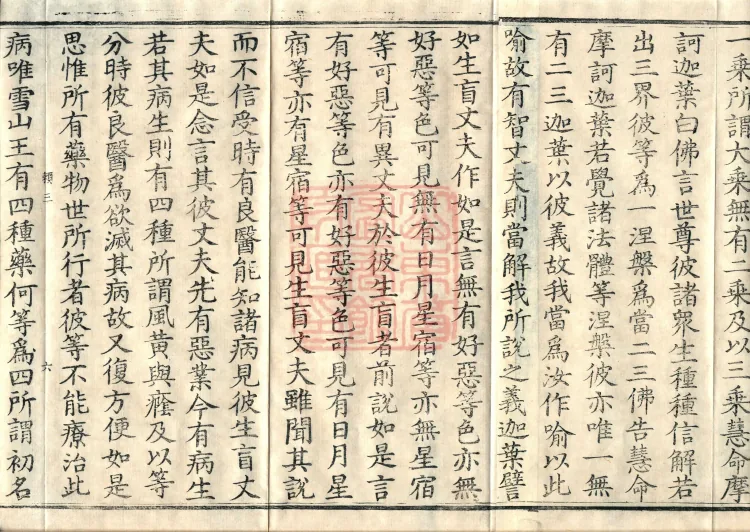 一乘所謂大乘無有二乘及以三乘慧命摩
訶迦葉白佛言世尊彼諸衆生種種信解若
出三界彼等爲一涅槃爲當二三佛告慧命
摩訶迦葉若覺諸法體等涅槃彼亦唯一無
有二三迦葉以彼義故我當爲汝作喻以此
喻故有智丈夫則當解我所說之義迦葉譬
如生盲丈夫作如是言無有好惡等色亦無
好惡等色可見無有日月星宿等亦無星宿
等可見有異丈夫於彼生盲者前說如是言
有好惡等色亦有好惡等色可見有日月星
宿等亦有星宿等可見生盲丈夫雖聞其說
而不信受時有良醫能知諸病見彼生盲丈
夫如是念言其彼丈夫先有惡業今有病生
若其病生則有四種所謂風黃與癊及以等
分時彼良醫爲欲滅其病故又復方便如是
思惟所有藥物世所行者彼等不能療治此
頼三
六
病唯雪山王有四種藥何等爲四所謂初名